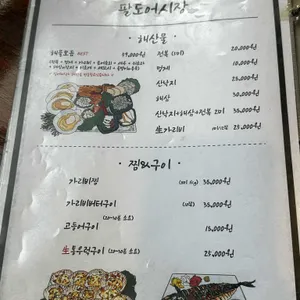 팔도어시장
· 해산물 ·
해물모듬 BEST 39,000원
전복 (2미) 20,000원
멍게 10,000원
산낙지 25,000원
해삼 30,000원
산낙지+해삼+전복 2미 35,000원
生가리비 25,000원
· 찜&구이 ·
가리비찜 (1kg) 35,000원
가리비버터구이 35,000원
고등어구이 (20~30분 소요) 15,000원
生통우럭구이 (20~30분 소요) 25,000원